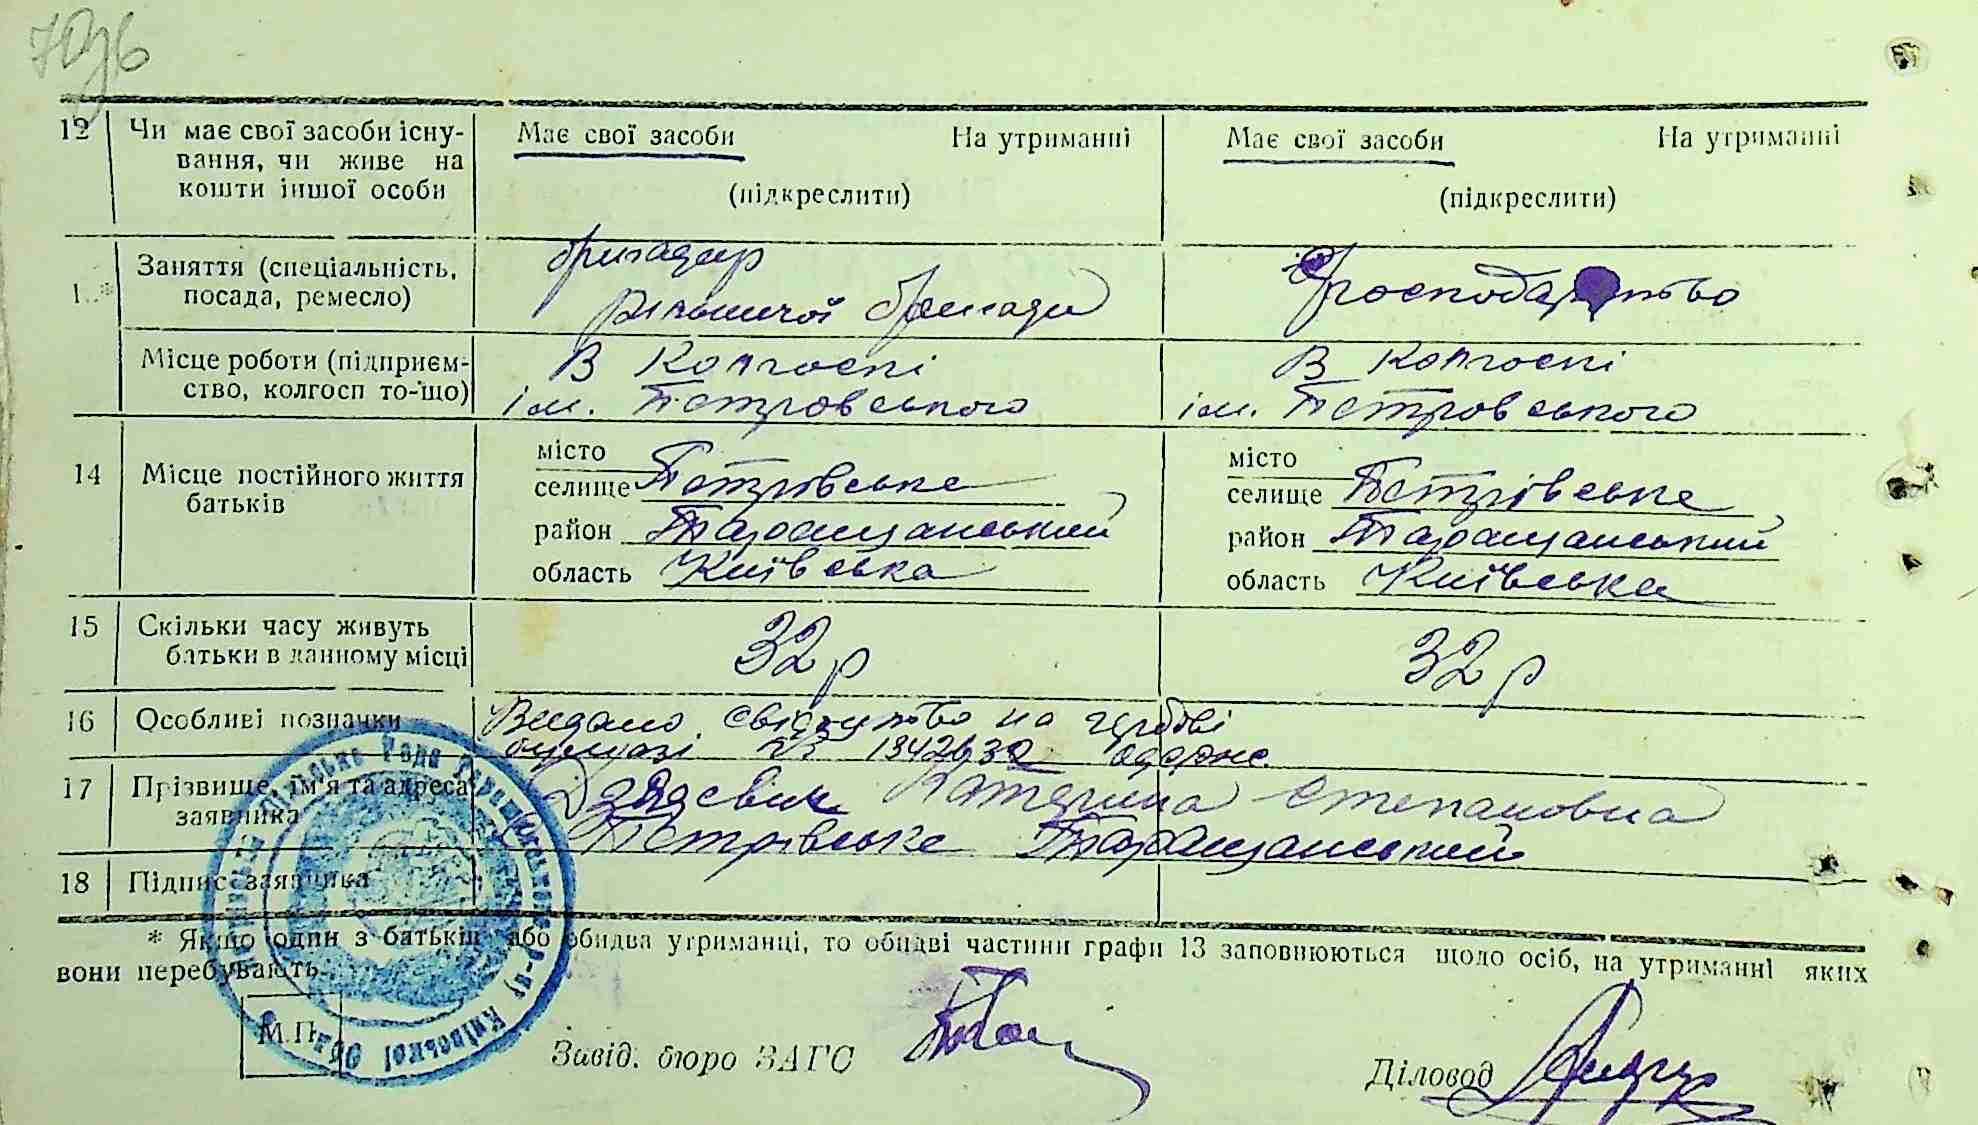 12 Чи має свої засоби існу-
вання, чи живе на
кошти іншої особи
Має свої засоби На утриманні
(підкреслити)
Має свої засоби На утриманні
(підкреслити)
1 * Заняття (спеціальність,
посада, ремесло)
бригадир
рільничої бригади
господарство
Місце роботи (підприєм-
ство, колгосп то-що)
В колгоспі
ім. Петровського
В колгоспі
ім. Петровського
14 Місце постійного життя
батьків
місто
селище Петрівське
район Таращанський
область Київська
місто
селище Петрівське
район Таращанський
область Київська
15 Скільки часу живуть
батьки в данному місці
32 р
32 р
16 Особливі позначки
Видано свідоцтво на гербові
бумазі № 1942632
17 Прізвище, ім'я та адреса
заявника
Катерина Степановна
Петрівське Таращанський
18 Підпис заявника
* Якщо один з батьків або обидва утриманці, то обидві частини графи 13 заповнюються щодо осіб, на утриманні яких
вони перебувають.
М.П.
Завід. бюро ЗАГС
Діловод